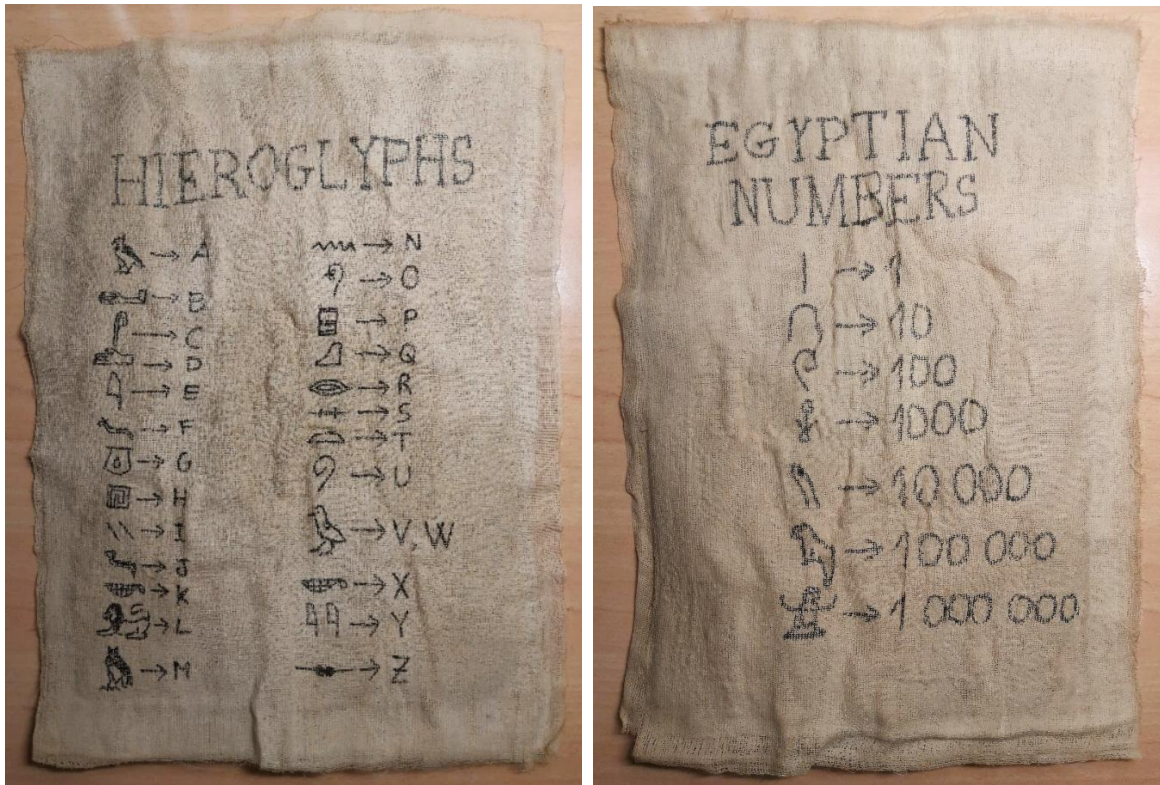 HIEROGLYPHS
→ A
→ B
→ C
→ D
→ E
→ F
→ G
→ H
→ I
→ J
→ K
→ L
→ M
→ N
→ O
→ P
→ Q
→ R
→ S
→ T
→ U
→ V, W
→ X
→ Y
→ Z
EGYPTIAN
NUMBERS
→ 1
→ 10
→ 100
→ 1000
→ 10 000
→ 100 000
→ 1 000 000